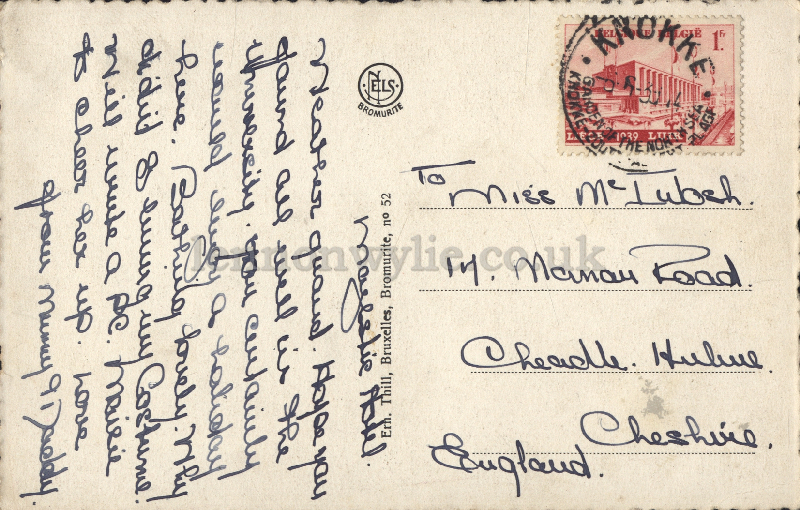 Majestic Hotel.
Weather grand. Hope you
found all well in the
University. You certainly
would enjoy a holiday
here. Bathing lovely. Why
didn't I bring my Costume.
Will write a p.c. Maisie
to cheer her up. Love
from Mummy & Daddy.
NELS
BROMURITE
Ern. Thill, Bruxelles, Bromurite, nº 52
BELGIQUE BELGIË 1 Fr
1939
KNOKKE
GARDEN OF THE NORTH SEA
KNOKKE ZOUTE
To Miss McIntosh.
14. Manau Road.
Cheadle. Hulme.
Cheshire.
England.
lennonwylie.co.uk